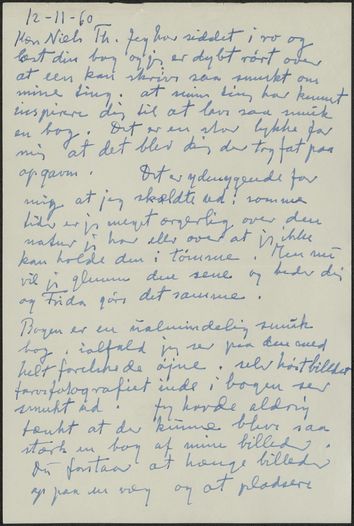 12-11-60
Kære Niels Th. Jeg har siddet i ro og
læst din bog og jeg er dybt rørt over
at een kan skrive saa smukt om
mine ting. at mine ting har kunnet
inspirere dig til at lave saa smuk
en bog. Det er en stor lykke for
mig at det blev dig der tog fat paa
opgaven. Det er ydmygende for
mig at jeg skældte ud i somme
tider er jeg meget ærgerlig over den
natur jeg har eller over at jeg ikke
kan holde den i tømme. Men nu
vil jeg glemme den scene og beder dig
og Frida gøre det samme.
Bogen er en ualmindelig smuk
bog. ialfald jeg ser paa den med
helt forelskede øjne. selv høstbilledet
farvefotografiet inde i bogen ser
smukt ud. Jeg havde aldrig
tænkt at der kunne blive saa
stærk en bog af mine billeder.
Du forstaar at hænge billeder
op paa en væg og at pladsere